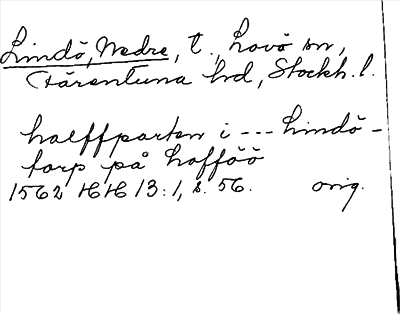 Lindö, Nedre, t., Lovö sn,
Färentuna hd, Stockh. l.
halffparten i --- Lindö-
torp på Lofföö
1562 HH 13:1, s. 56. orig.